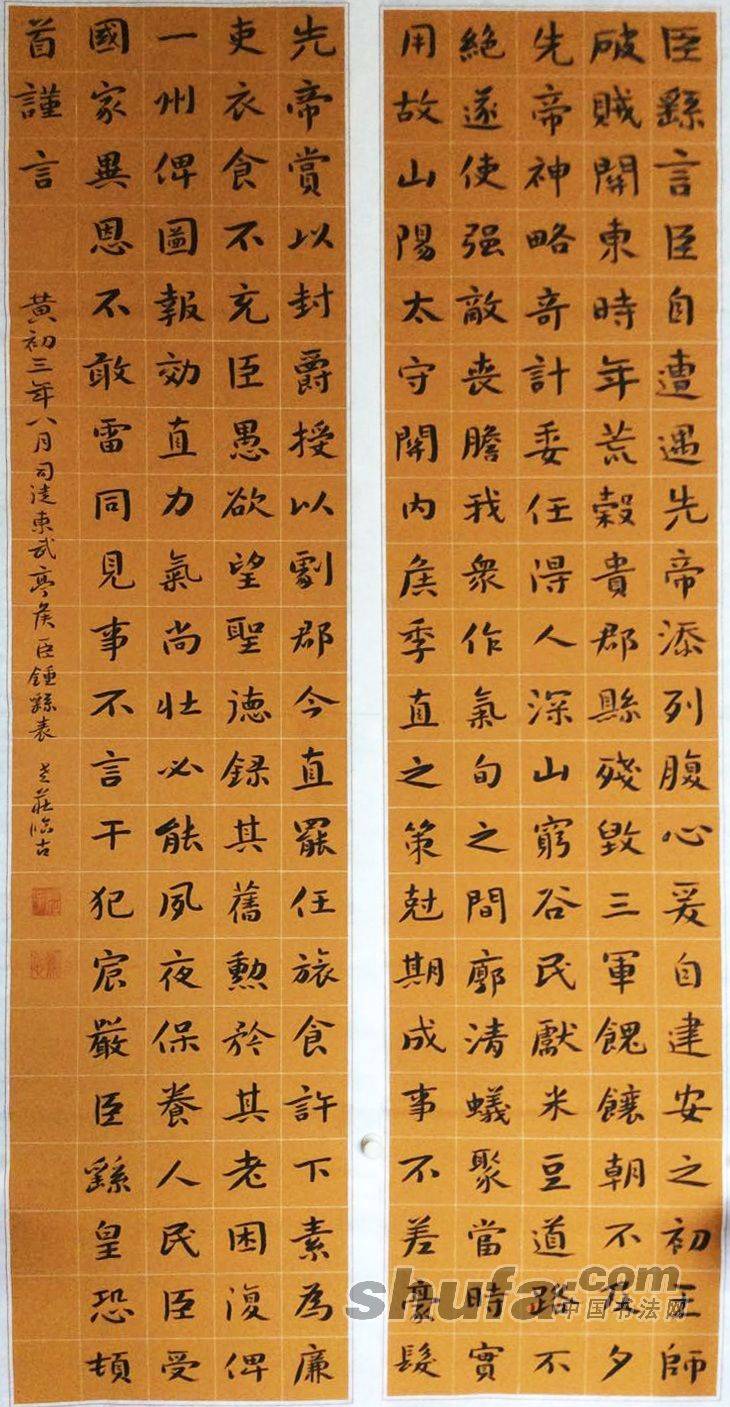 臣繇言臣自遭遇先帝添列腹心爰自建安之初王師
破賊關東時年荒穀貴郡縣殘毀三軍餽饟朝不及夕
先帝神略奇計委任得人深山窮谷民獻米豆道路不
絕遂使强敵喪膽我衆作氣旬之間廓清蟻聚當時實
用故山陽太守關內侯季直之策尅期成事不差豪髮
先帝賞以封爵授以劇郡今直罷任旅食許下素為廉
吏衣食不充臣愚欲望聖德録其舊勳矜其老困復俾
一州俾圖報効直力氣尚壯必能夙夜保養人民臣受
國家異恩不敢雷同見事不言干犯宸嚴臣繇皇恐頓
首謹言
黃初三年八月司徒東武亭侯臣鍾繇表 莊臨古
shufa.com
中国书法网